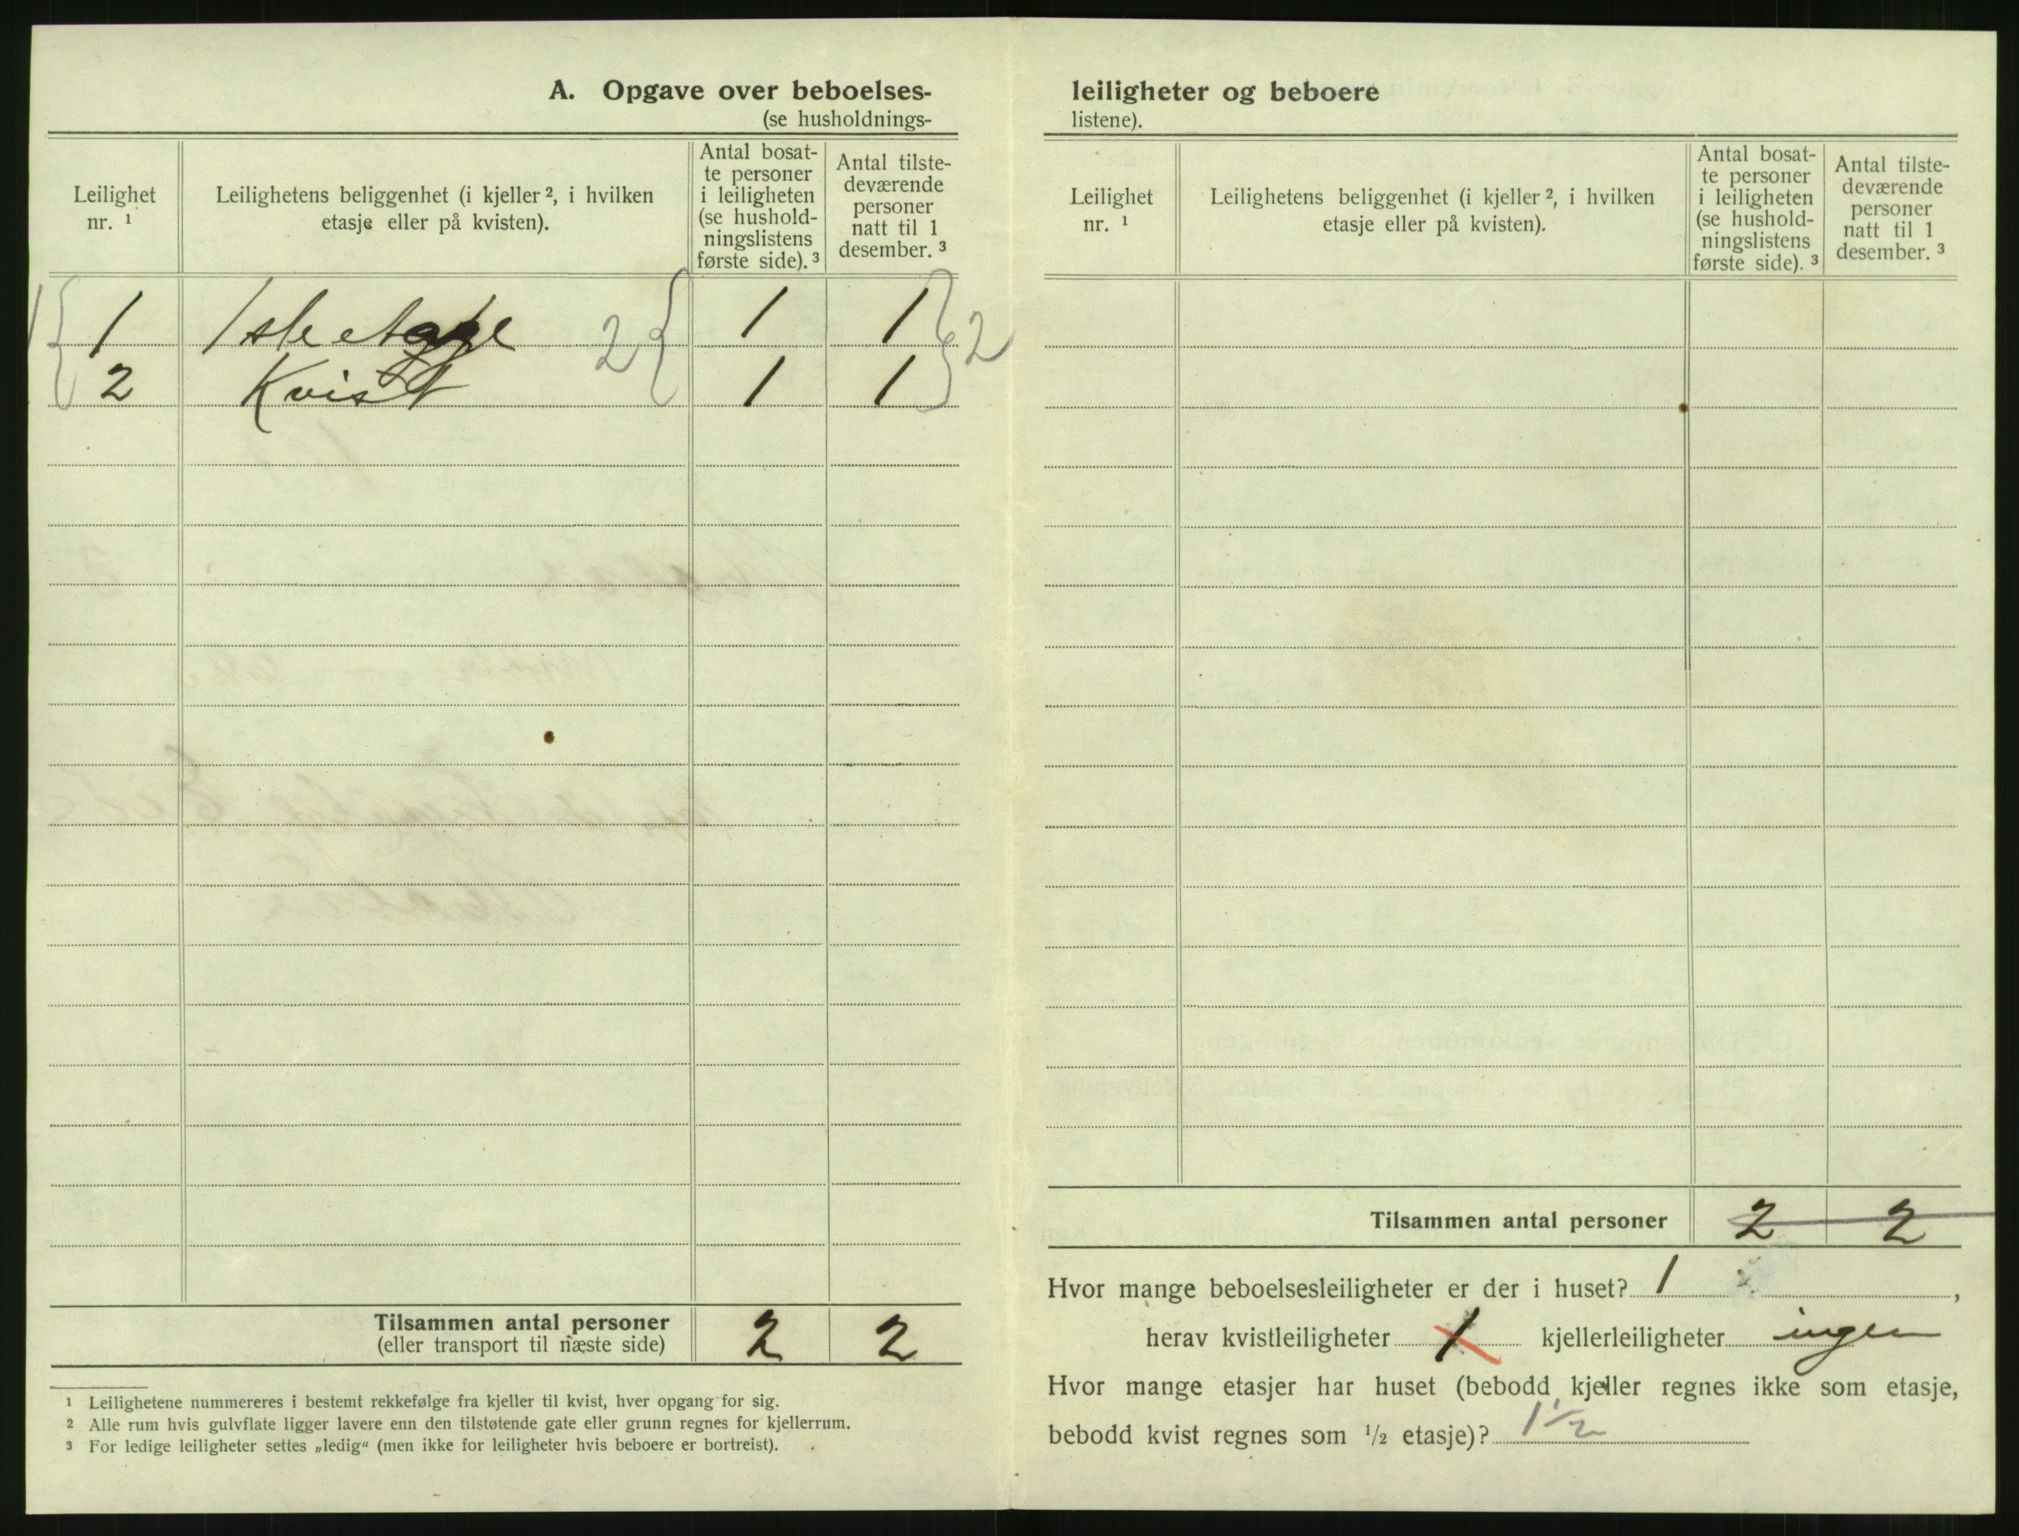 A. Opgave over beboelses-
(se husholdnings-
Leilighet nr. ¹
Leilighetens beliggenhet (i kjeller ², i hvilken etasje eller på kvisten).
Antal bosat-
te personer
i leiligheten
(se hushold-
ningslistens
første side). ³
Antal tilste-
deværende
personer
natt til 1
desember. ³
1 1 1ste etage 2 1 1 2
2 Kvist 1 1
Tilsammen antal personer 2 2
(eller transport til næste side)
¹ Leilighetene nummereres i bestemt rekkefølge fra kjeller til kvist, hver opgang for sig.
² Alle rum hvis gulvflate ligger lavere enn den tilstøtende gate eller grunn regnes for kjellerrum.
³ For ledige leiligheter settes „ledig“ (men ikke for leiligheter hvis beboere er bortreist).
leiligheter og beboere
listene).
Leilighet nr. ¹
Leilighetens beliggenhet (i kjeller ², i hvilken etasje eller på kvisten).
Antal bosat-
te personer
i leiligheten
(se hushold-
ningslistens
første side). ³
Antal tilste-
deværende
personer
natt til 1
desember. ³
Tilsammen antal personer 2 2
Hvor mange beboelsesleiligheter er der i huset? 1 ,
herav kvistleiligheter 1 kjellerleiligheter ingen
Hvor mange etasjer har huset (bebodd kjeller regnes ikke som etasje,
bebodd kvist regnes som ½ etasje)? 1½